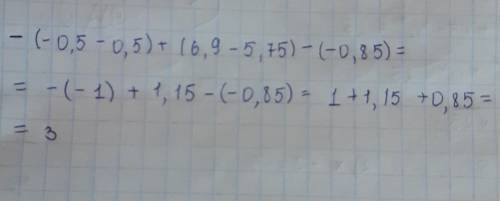 - (-0,5 - 0,5) + (6,9 - 5,75) - (-0,85) =
= -(-1) + 1,15 - (-0,85) = 1 + 1,15 + 0,85 =
= 3